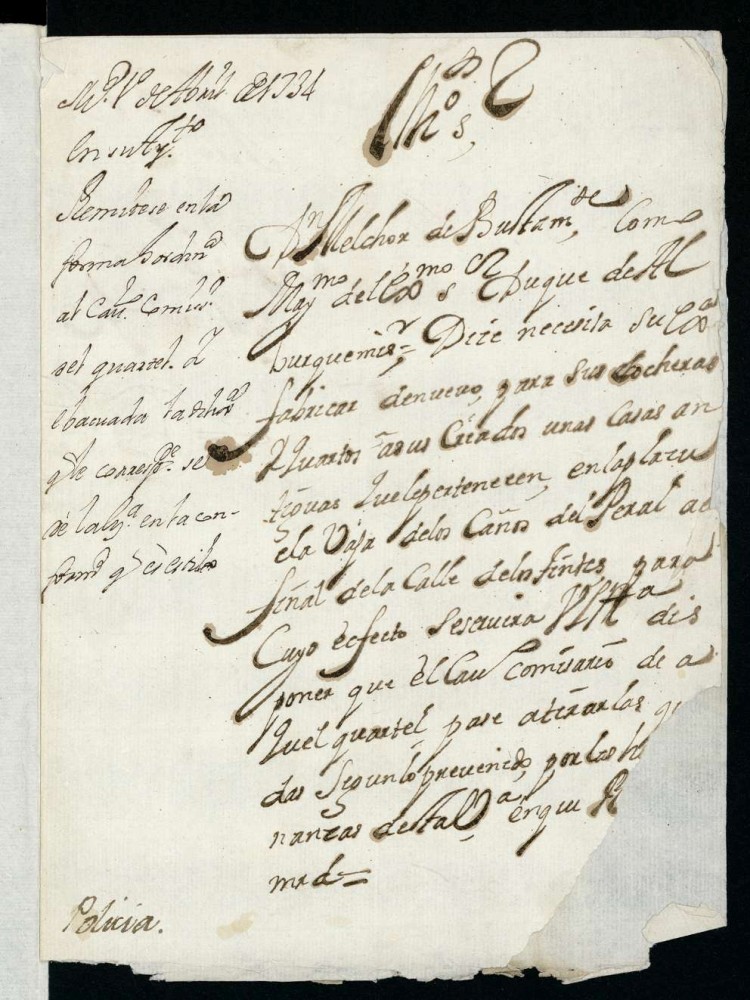 Md. 1º de Abril de 1734
En su Ayto
Remitese en la
forma hordinª
al Cavº. Comisº.
del quartel. Y
ebacuada la dilixª
q le correspde. se
dé la lizª en la con-
formd q es estilo
Policia.
Illmo Sr
Dn Melchor de Bustamte, Como
Maymo del Exmo Sr Duque de Al
burquerque, Dice necesita su Exª
fabricar de nuevo, para sus cocheras
y quartos a sus Criados unas Casas an
tiguas que le pertenecen, en la plazu
ela Vaja delos Caños del Peral a el
final dela Calle delos tintes, para
Cuyo efecto se servira dis
poner que el Cavº Comisario de a
quel quartel pase a tirar las
das segun lo prevenido, por las h
nanzas de sta Vª, en que R
mrd=